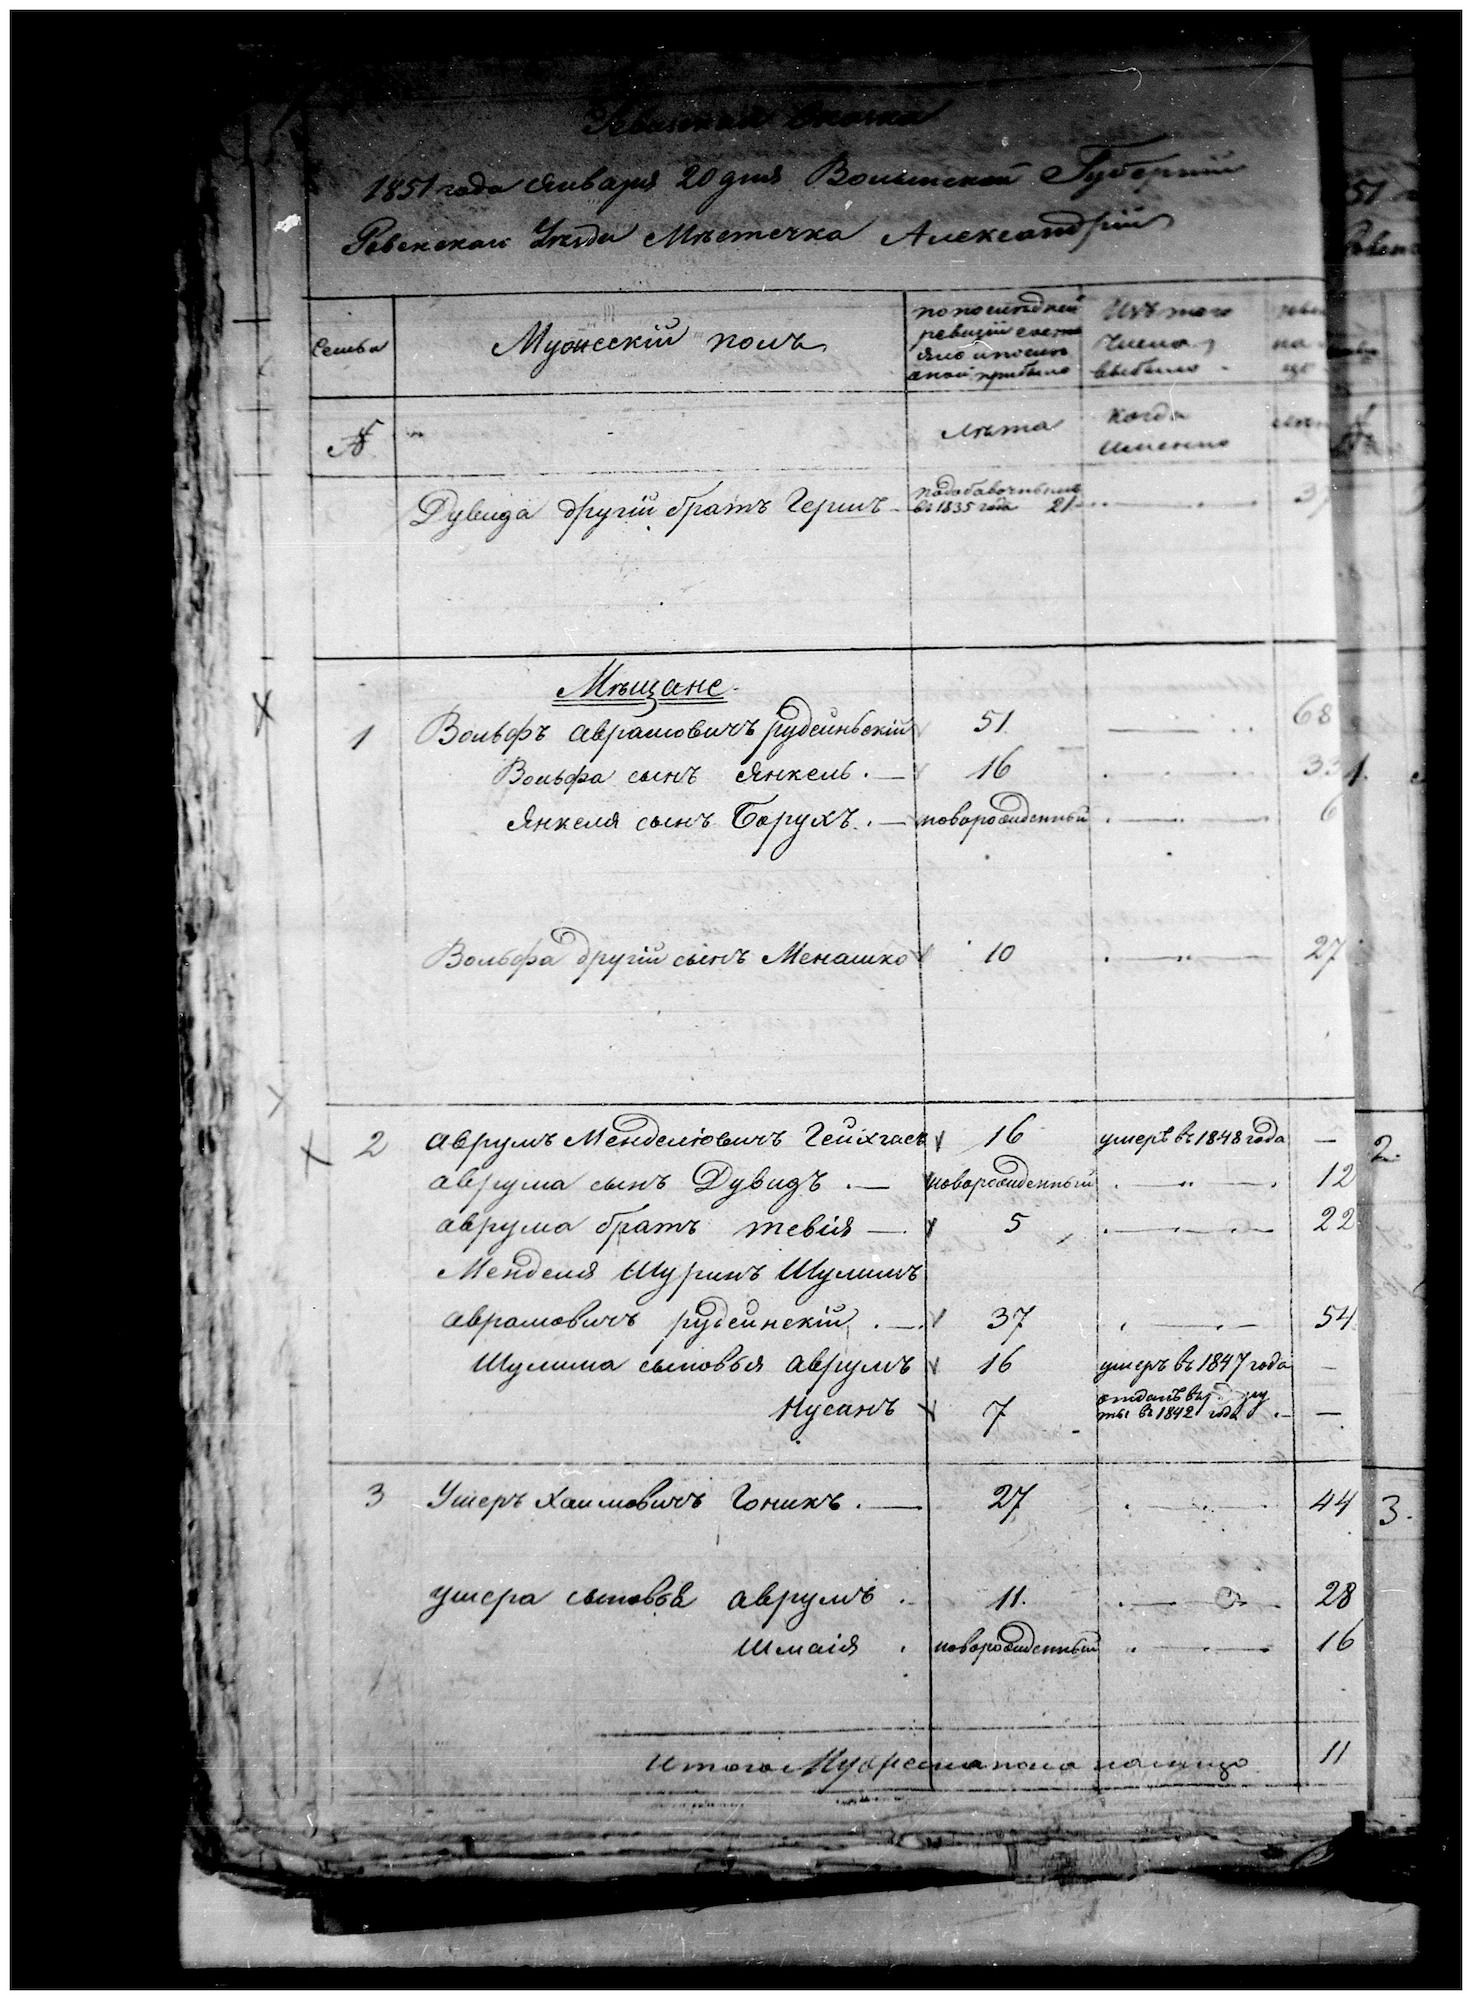 Ревизская Сказка
1851 года Января 20 дня Волынской Губерніи
Ровенскаго Уезда Мѣстечка Александріи
Семьи
Мужескій полъ
по последней
ревизіи состо
яло и после
оной прибыло
Изъ того
числа
выбыло
№
Лѣта
Когда
именно
Дувида другій братъ Гершъ
въ 1835 года 21
Мѣщане
1 Вольфъ Аврамовичъ Рудеиньскій 51 68
Вольфа сынъ Янкель 16 33
Янкеля сынъ Борухъ новорожденный 6
Вольфа другій сынъ Менашко 10 27
2 Аврумъ Менделіовичъ 16 умеръ въ 1848 года —
Аврума сынъ Дувидъ новорожденный 12
Аврума братъ Тевія 5 22
Менделя Шуринъ Шулимъ
Аврамовичъ Рудеинскій 37 54
Шулима сыновья Аврумъ 16 умеръ въ 1847 года —
Нусанъ 7 отданъ въ рекру
ты въ 1842 года —
3 Ушеръ Хаимовичъ Гоникъ 27 44
Ушера сыновья Аврумъ 11 28
Шмаія новорожденный 16
Итого Мужеска пола налицо 11
1.
2.
3.